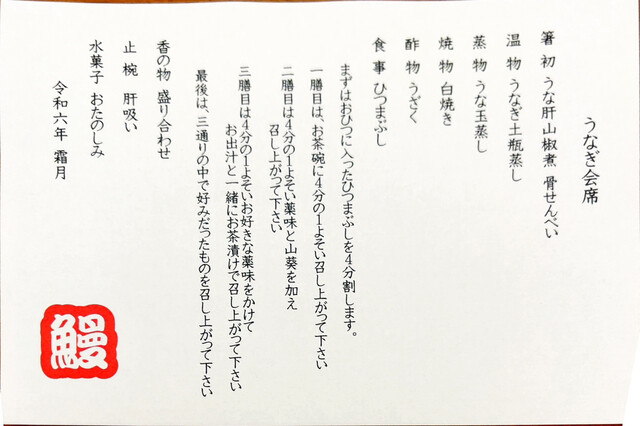 うなぎ会席
箸 初 うな肝山椒煮 骨せんべい
温 物 うなぎ土瓶蒸し
蒸 物 うな玉蒸し
焼 物 白焼き
酢 物 うざく
食 事 ひつまぶし
まずはおひつに入ったひつまぶしを4分割します。
一膳目は、お茶碗に4分の1よそい召し上がって下さい
二膳目は4分の1よそい薬味と山葵を加え
召し上がって下さい
三膳目は4分の1よそいお好きな薬味をかけて
お出汁と一緒にお茶漬けで召し上がって下さい
最後は、三通りの中で好みだったものを召し上がって下さい
香の物 盛り合わせ
止 椀 肝吸い
水菓子 おたのしみ
令和六年 霜月
鰻